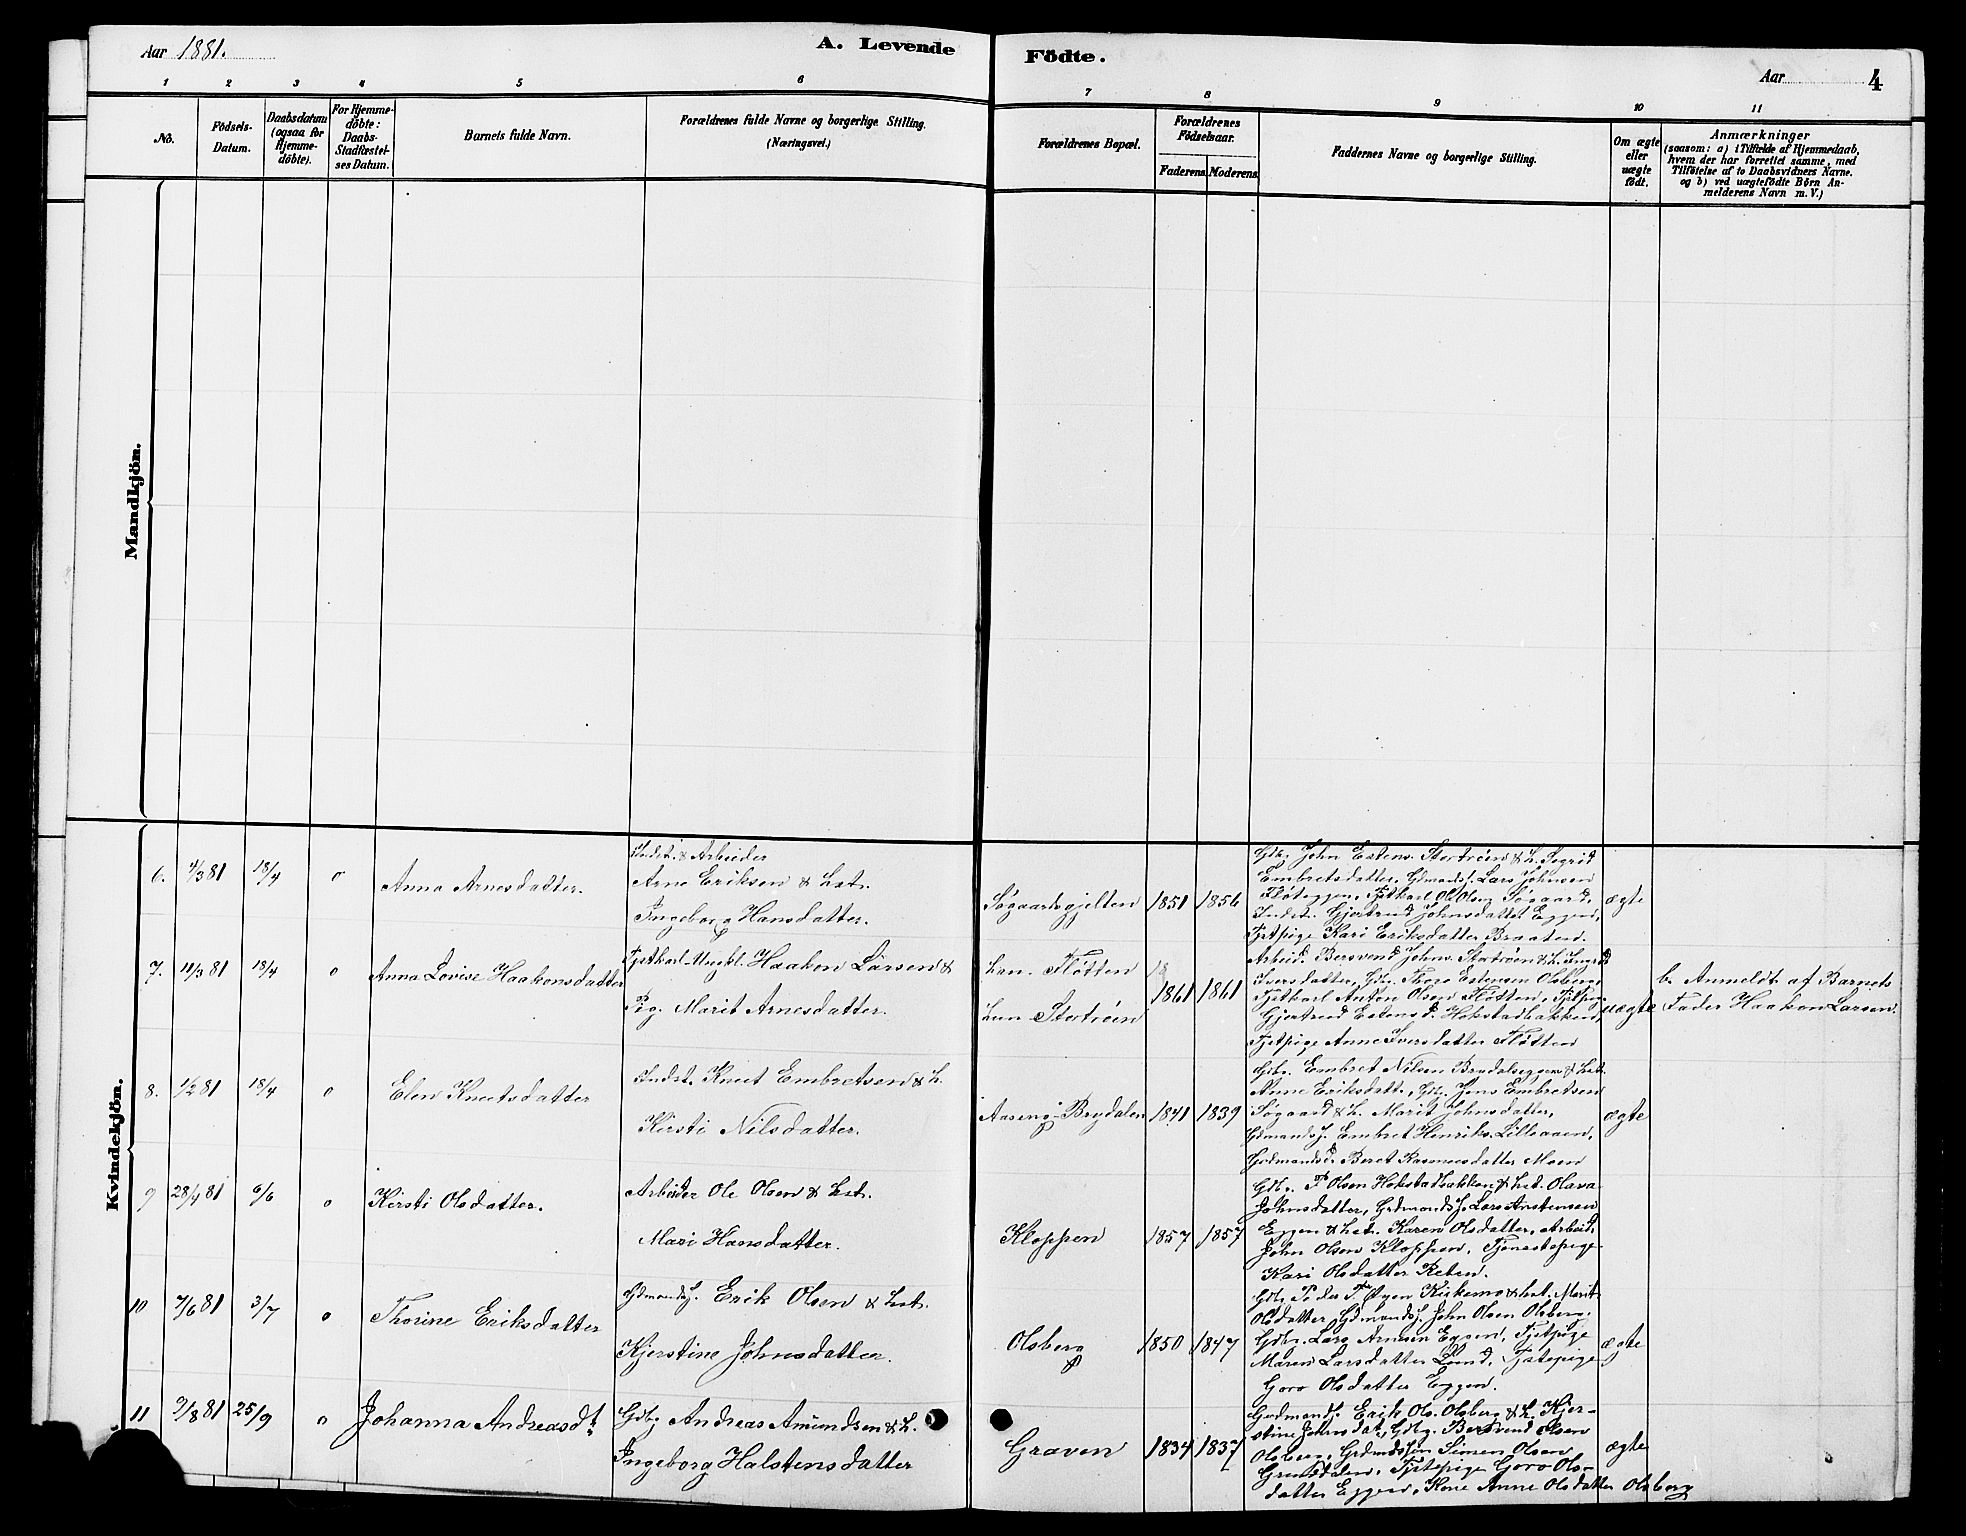 Aar 1881.
A. Levende
Födte.
Aar
4
1 2 3 4 5 6 7 8 9 10 11
No.
Födsels-
Datum.
Daabsdatum
(ogsaa for
Hjemme-
döbte).
For Hjemme-
döbte:
Daabs-
Stadfæstel-
ses Datum.
Barnets fulde Navn.
Forældrenes fulde Navne og borgerlige Stilling.
(Næringsvei.)
Forældrenes Bopæl.
Forældrenes
Födselsaar.
Faderens. Moderens.
Faddernes Navne og borgerlige Stilling.
Om ægte
eller
uægte
födt.
Anmærkninger
(saasom: a) i Tilfælde af Hjemmedaab,
hvem der har forrettet samme, med
Tilföielse af to Daabsvidners Navne.
og b) ved uægtefödte Börn An-
melderens Navn m. V.)
Mandkjön.
Kvindekjön.
6. 4/3 81 18/4 o
Anna Arnesdatter.
Indst. & Arbeider
Arne Eriksen & Hst.
Ingeborg Hansdatter.
Søgaardsgjelten 1851 1856
Gdbr. John Estens. Stortrøen & H. Sigrid
Embretsdatter, Gdmands. Lars Johnsen
Fløteggen, Tjstkarl Ol Olsen Søgaard,
Indst. Gjertrud Johnsdatter Eggen,
Tjstpige Kari Eriksdatter Braaten.
ægte
7. 11/3 81 18/4 o
Anna Lovise Haakonsdatter
Tjstkarl Ungkl. Haakon Larsen &
Pig. Marit Arnesdatter.
han Fløtten
hun Stortrøen
18
1861 1861
Arbeid. Bersvend Johns. Stortrøen & H. Ingrd
Iversdatter, Gdbr. Thore Estensen Olsberg,
Tjstkarl Anton Olsen Fløtten, Tjstpig.
Gjertrud Estensd. Hokstadbakken,
Tjstpige Anne Iversdatter Fløtten
uægte
b. Anmeldt af Barnets
Fader Haakon Larsen.
8. 1/2 81 18/4 o
Elen Knutsdatter
Indst. Knut Embretsen & H.
Kirsti Nilsdatter.
Aaseng Brydalen 1841 1839
Gdbr. Embret Nilsen Brydalseggen & Hst.
Anne Eriksdatt., Gdbr. Jens Embretsen
Søgaard & H. Marit Johnsdatter,
Gdmands. Embret Henriks. Lilleaaen,
Gdmandsd. Beret Rasmusdatter Moen
ægte
9 28/4 81 6/6 o
Kirsti Olsdatter.
Arbeider Ole Olsen & Hst.
Mari Hansdatter.
Kloppen 1857 1857
Gdbr. P. Olsen Hokstadbakken & Hst. Olava
Johnsdatter, Grdmands. Lars Anstensen
Eggen & Hst. Karen Olsdatter, Arbeid.
John Olsen Kloppen, Tjenestepige
Kari Olsdatter Reben.
10 7/6 81 3/7 o
Thorine Eriksdatter
Gdmands. Erik Olsen & Hst.
Kjerstine Johnsdatter.
Olsberg 1850 1847
Gdbr. Peder T. Øyen Kirkemo & Hst. Marit
Olsdatter, Gdmands. John Olsen Olsberg,
Gdbr. Lars Arnesen Eggen, Tjstpige
Maren Larsdatter Lund, Tjstepige
Goro Olsdatter Eggen.
ægte
11 9/8 81 25/9 o
Johanna Andreasdt.
Gdbr. Andreas Amundsen & H.
Ingeborg Halstensdatter
Graven 1834 1837
Gardmands. Erik Ols. Olsberg & H. Kjer-
stine Johnsdat., Gdbr. Bersvend Olsen
Olsberg, Grdmdssøn Simen Olsen
Grimsdalen, Tjstepige Goro Ols-
datter Eggen, Kone Anne Olsdatter Olsberg
ægte